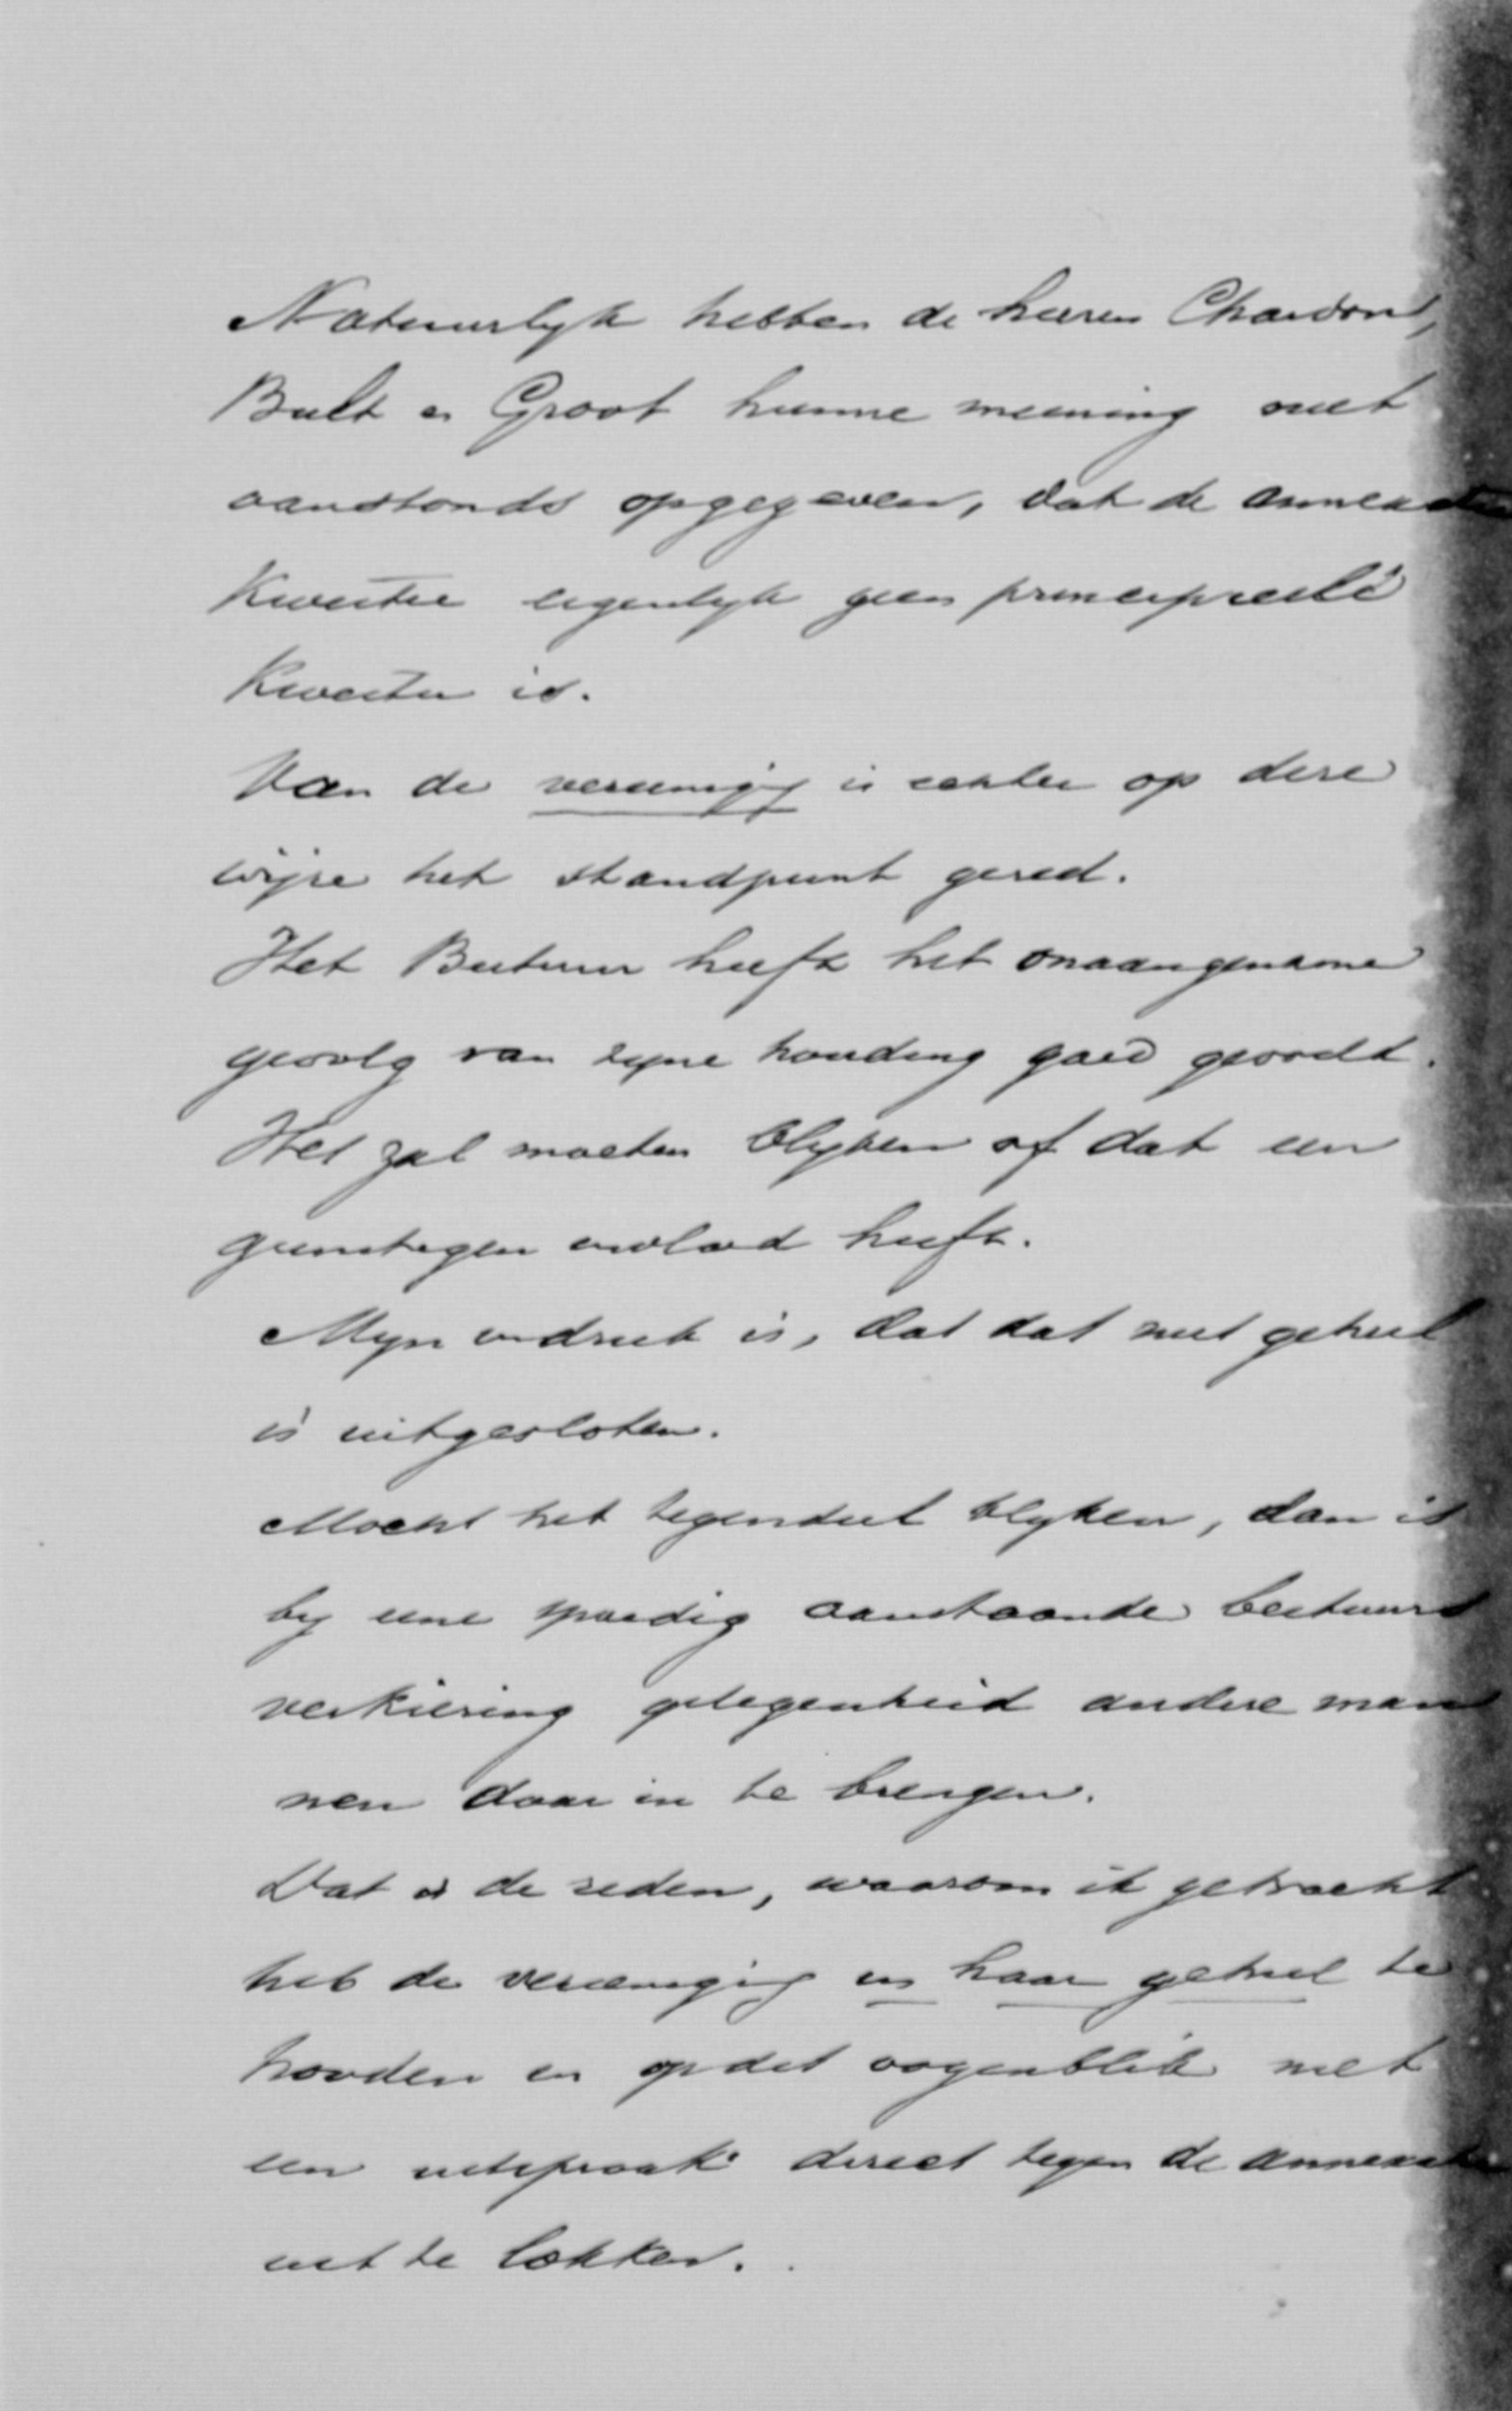 Natuurlyk hebben de heeren Chardon,
Bult en Groot hunne meening niet
aanstonds opgegeven, dat de annexatie
Kwestie eigenlyk geen principieele
Kwestie is.
Van de vereeniging is echter op deze
wijze het standpunt gered.
Het Bestuur heeft het onaangename
gevolg van zyne houding goed gevoeld.
Het zal moeten blyken of dat een
gunstigen invloed heeft.
Myn indruk is, dat dat niet geheel
is uitgesloten.
Mocht het tegendeel blyken, dan is
by eene spoedig aanstaande bestuurs
verkiezing gelegenheid andere man
nen daar in te brengen.
Dat is de reden, waarom ik getracht
heb de vereeniging in haar geheel te
houden en op dit oogenblik niet
een uitspraak direct tegen de annexatie
uit te lokken.